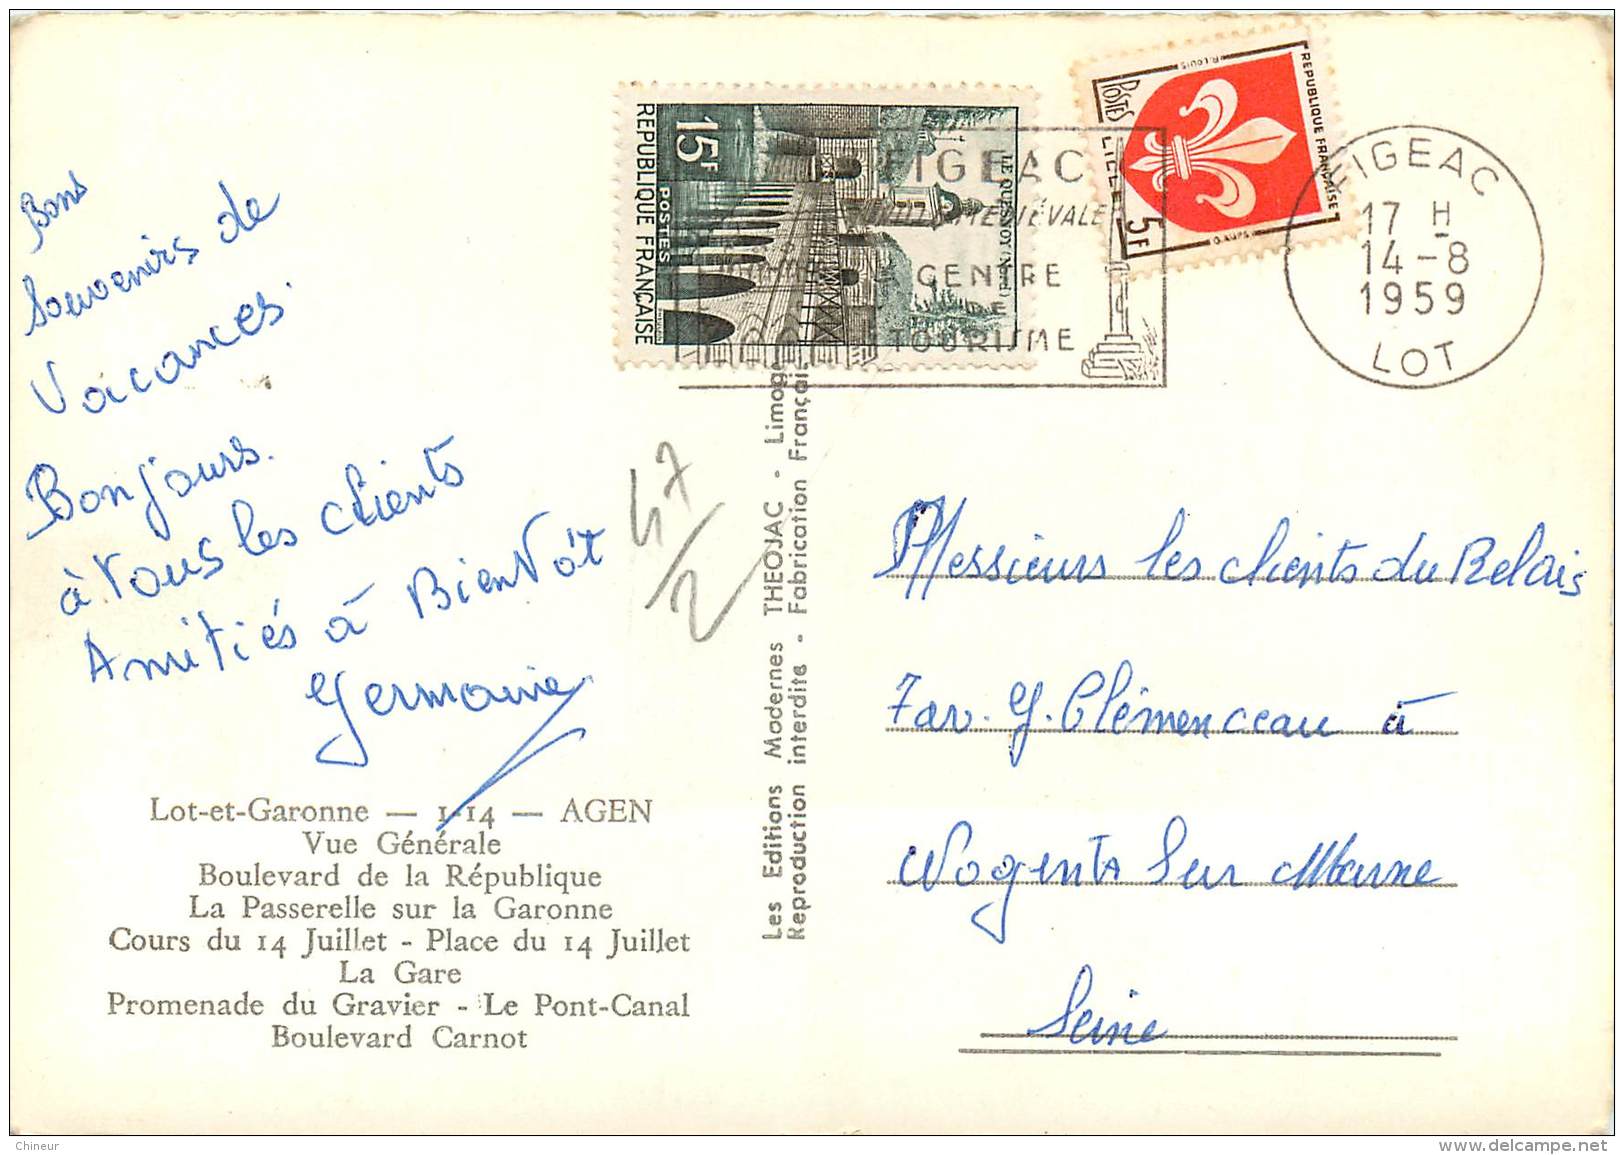 Bons
Souvenirs de
Vacances.
Bonjours.
à tous les clients
Amitiés à Bientôt
Germaine
47/2
Lot-et-Garonne — 1-14 — AGEN
Vue Générale
Boulevard de la République
La Passerelle sur la Garonne
Cours du 14 Juillet - Place du 14 Juillet
La Gare
Promenade du Gravier - Le Pont-Canal
Boulevard Carnot
Les Editions Modernes THEOJAC - Limoge
Reproduction interdite - Fabrication Françai
15F
REPUBLIQUE FRANÇAISE
POSTES
LE QUESNOY (Nord)
FIGEAC
VILLE MEDIÉVALE
CENTRE
DE
TOURISME
POSTES
LILLE
5F
REPUBLIQUE FRANÇAISE
R. LOUIS
FIGEAC
17 H
14-8
1959
LOT
Messieurs les clients du Relais
7 av. G. Clémenceau à
Nogent Sur Marne
Seine
Chineur
www.delcampe.net